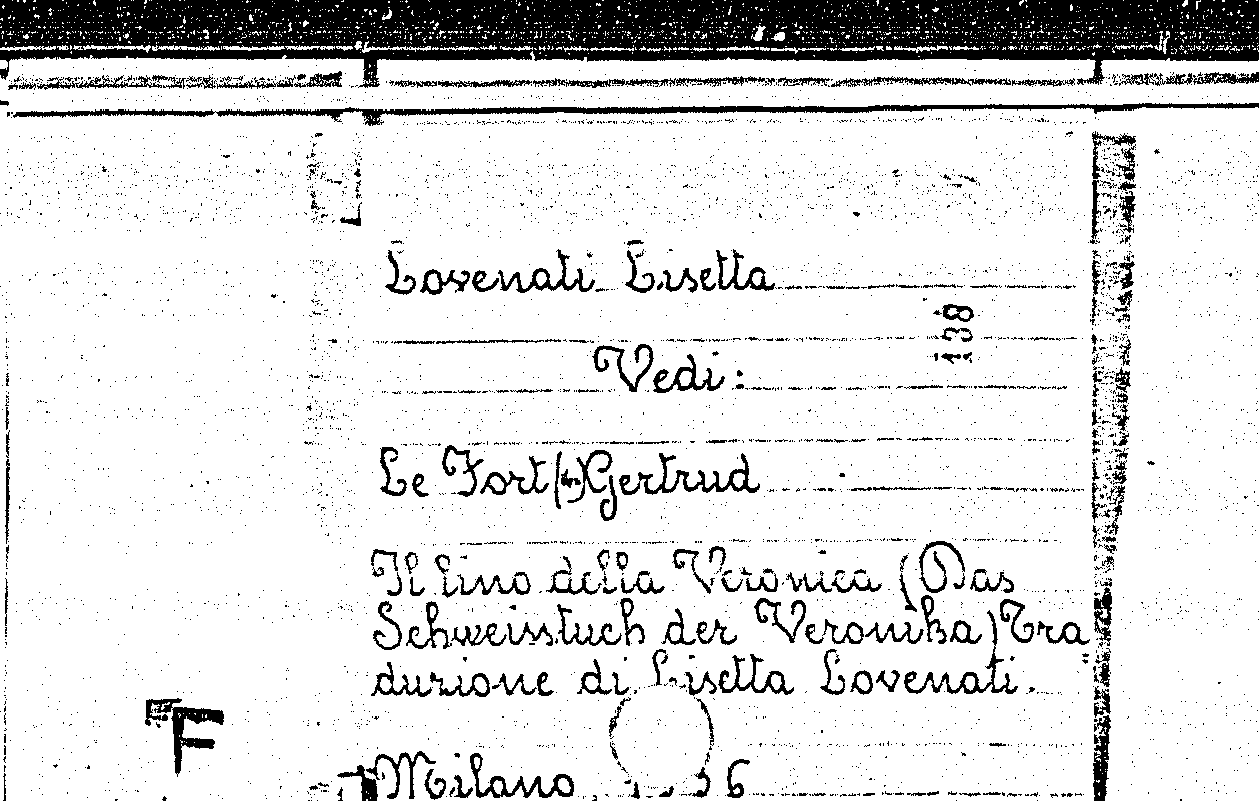 Lovenati Lisetta
138
Vedi:
Le Fort Gertrud
Il lino della Veronica (Das
Schweisstuch der Veronika) Tra
duzione di Lisetta Lovenati.
F
Milano,